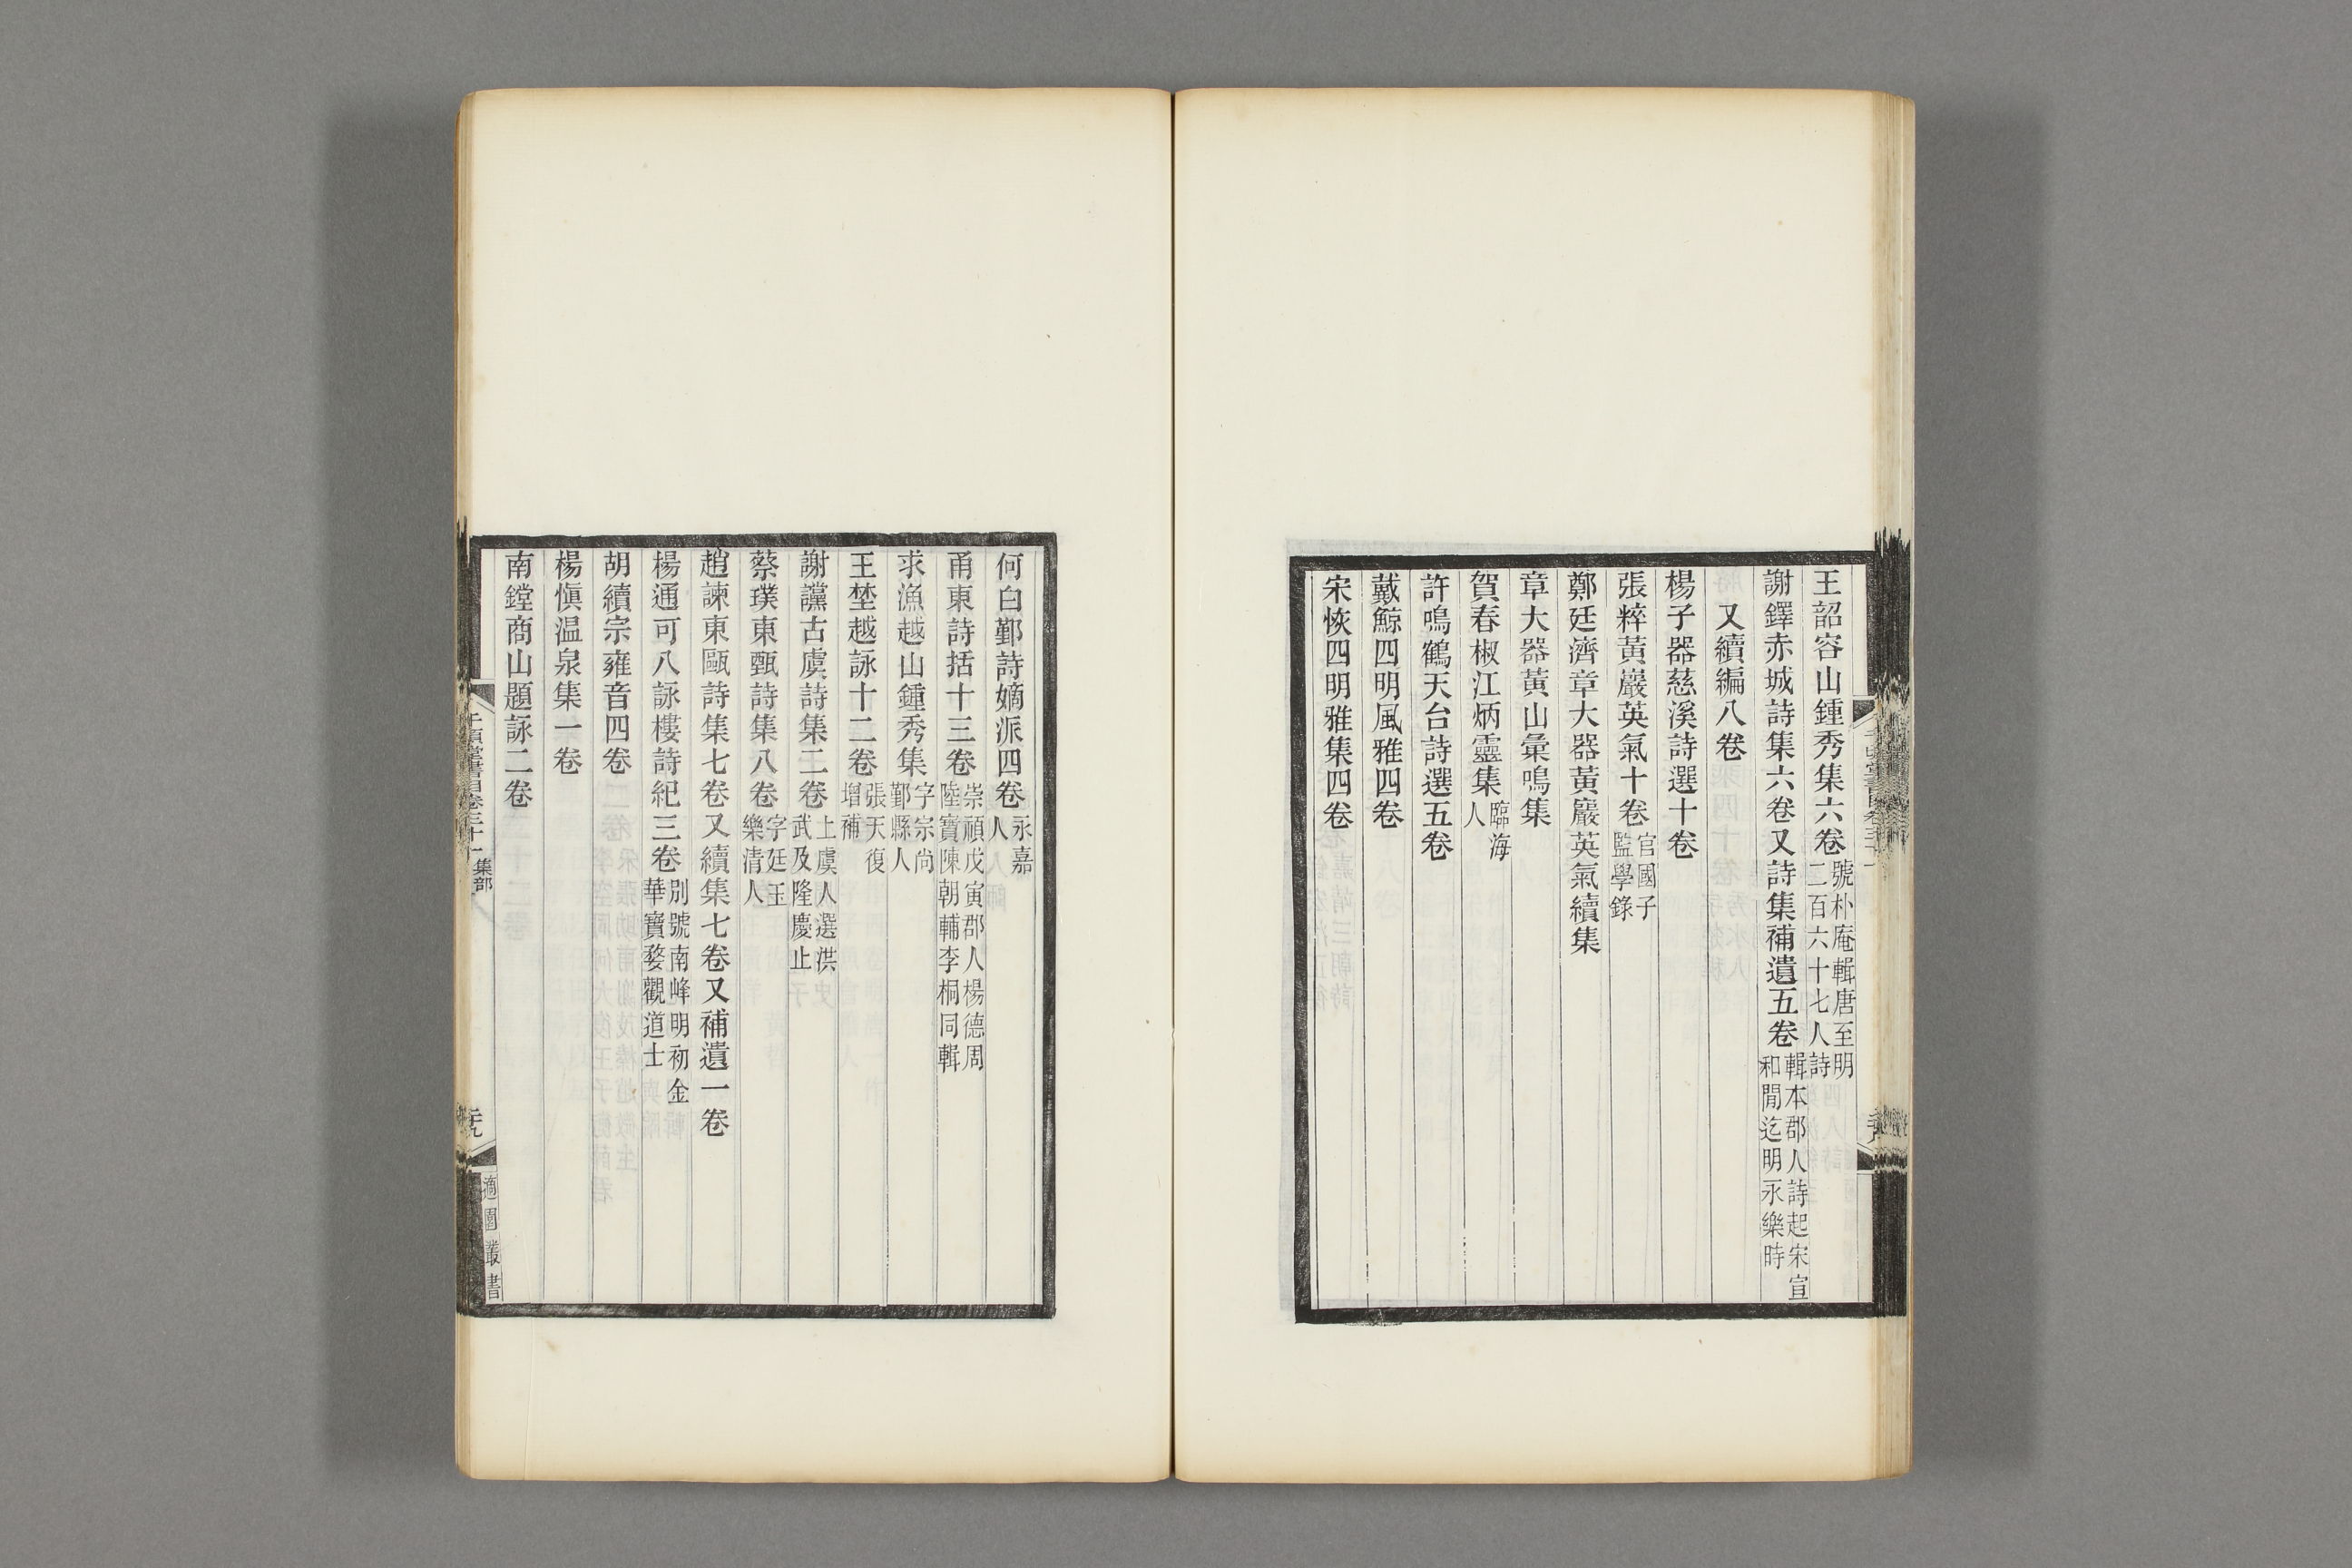 王韶容山鍾秀集六卷號朴庵輯唐至明二百六十七人詩
謝鐸赤城詩集六卷又詩集補遺五卷輯本郡人詩起宋宣和閒迄明永樂時
又續編八卷
楊子器慈溪詩選十卷
張粹黃巖英氣十卷官國子監學錄
鄭廷濟章大器黃巖英氣續集
章大器黃山彙鳴集
賀春椒江炳靈集臨海人
許鳴鶴天台詩選五卷
戴鯨四明風雅四卷
宋恢四明雅集四卷
何白鄞詩嫡派四卷永嘉人
甬東詩括十三卷崇禎戊寅郡人楊德周陸寶陳朝輔李桐同輯
求漁越山鍾秀集字宗尚鄞縣人
王埜越詠十二卷張天復增補
謝讜古虞詩集二卷上虞人選洪武及隆慶止
蔡璞東甄詩集八卷字廷玉樂清人
趙諫東甌詩集七卷又續集七卷又補遺一卷
楊通可八詠樓詩紀三卷別號南峰明初金華寶婺觀道士
胡續宗雍音四卷
楊愼温泉集一卷
南鏜商山題詠二卷
千頃堂書目卷三十一 集部
适園叢書